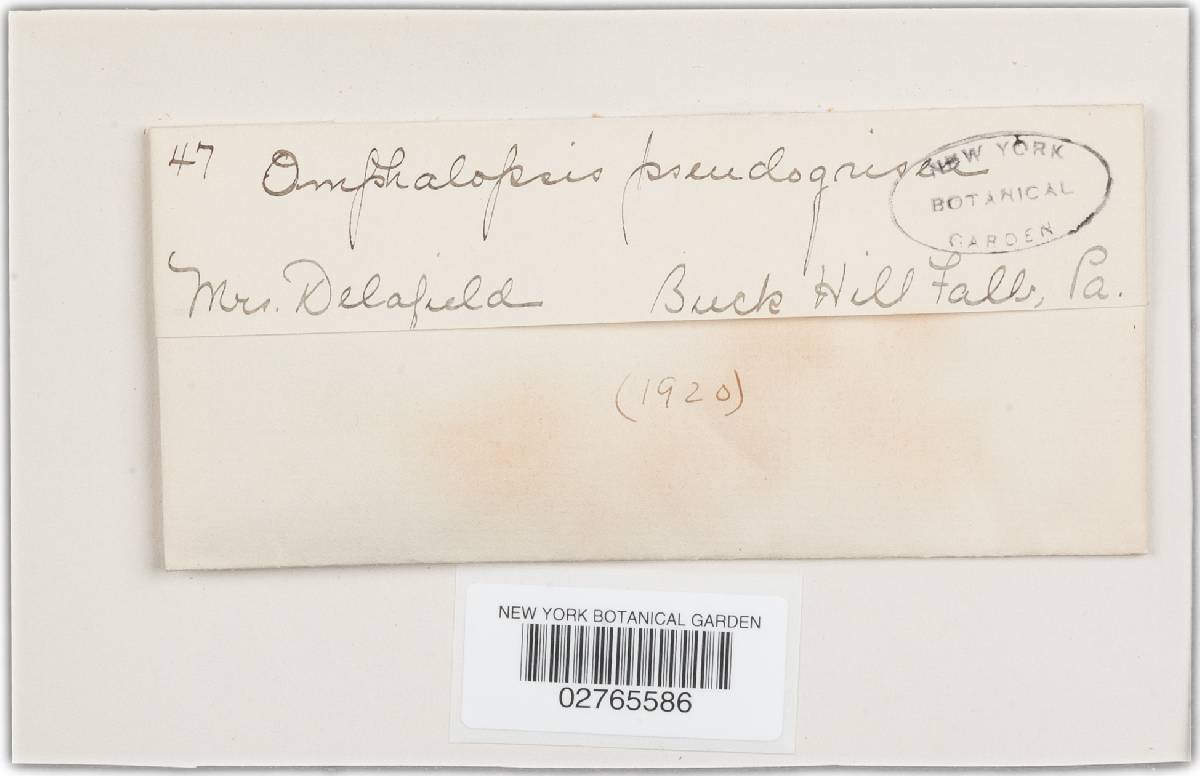 47 Omphalopsis pseudogrisea
NEW YORK
BOTANICAL
GARDEN
Mrs. Delafield Buck Hill Falls, Pa.
(1920)
NEW YORK BOTANICAL GARDEN
02765586